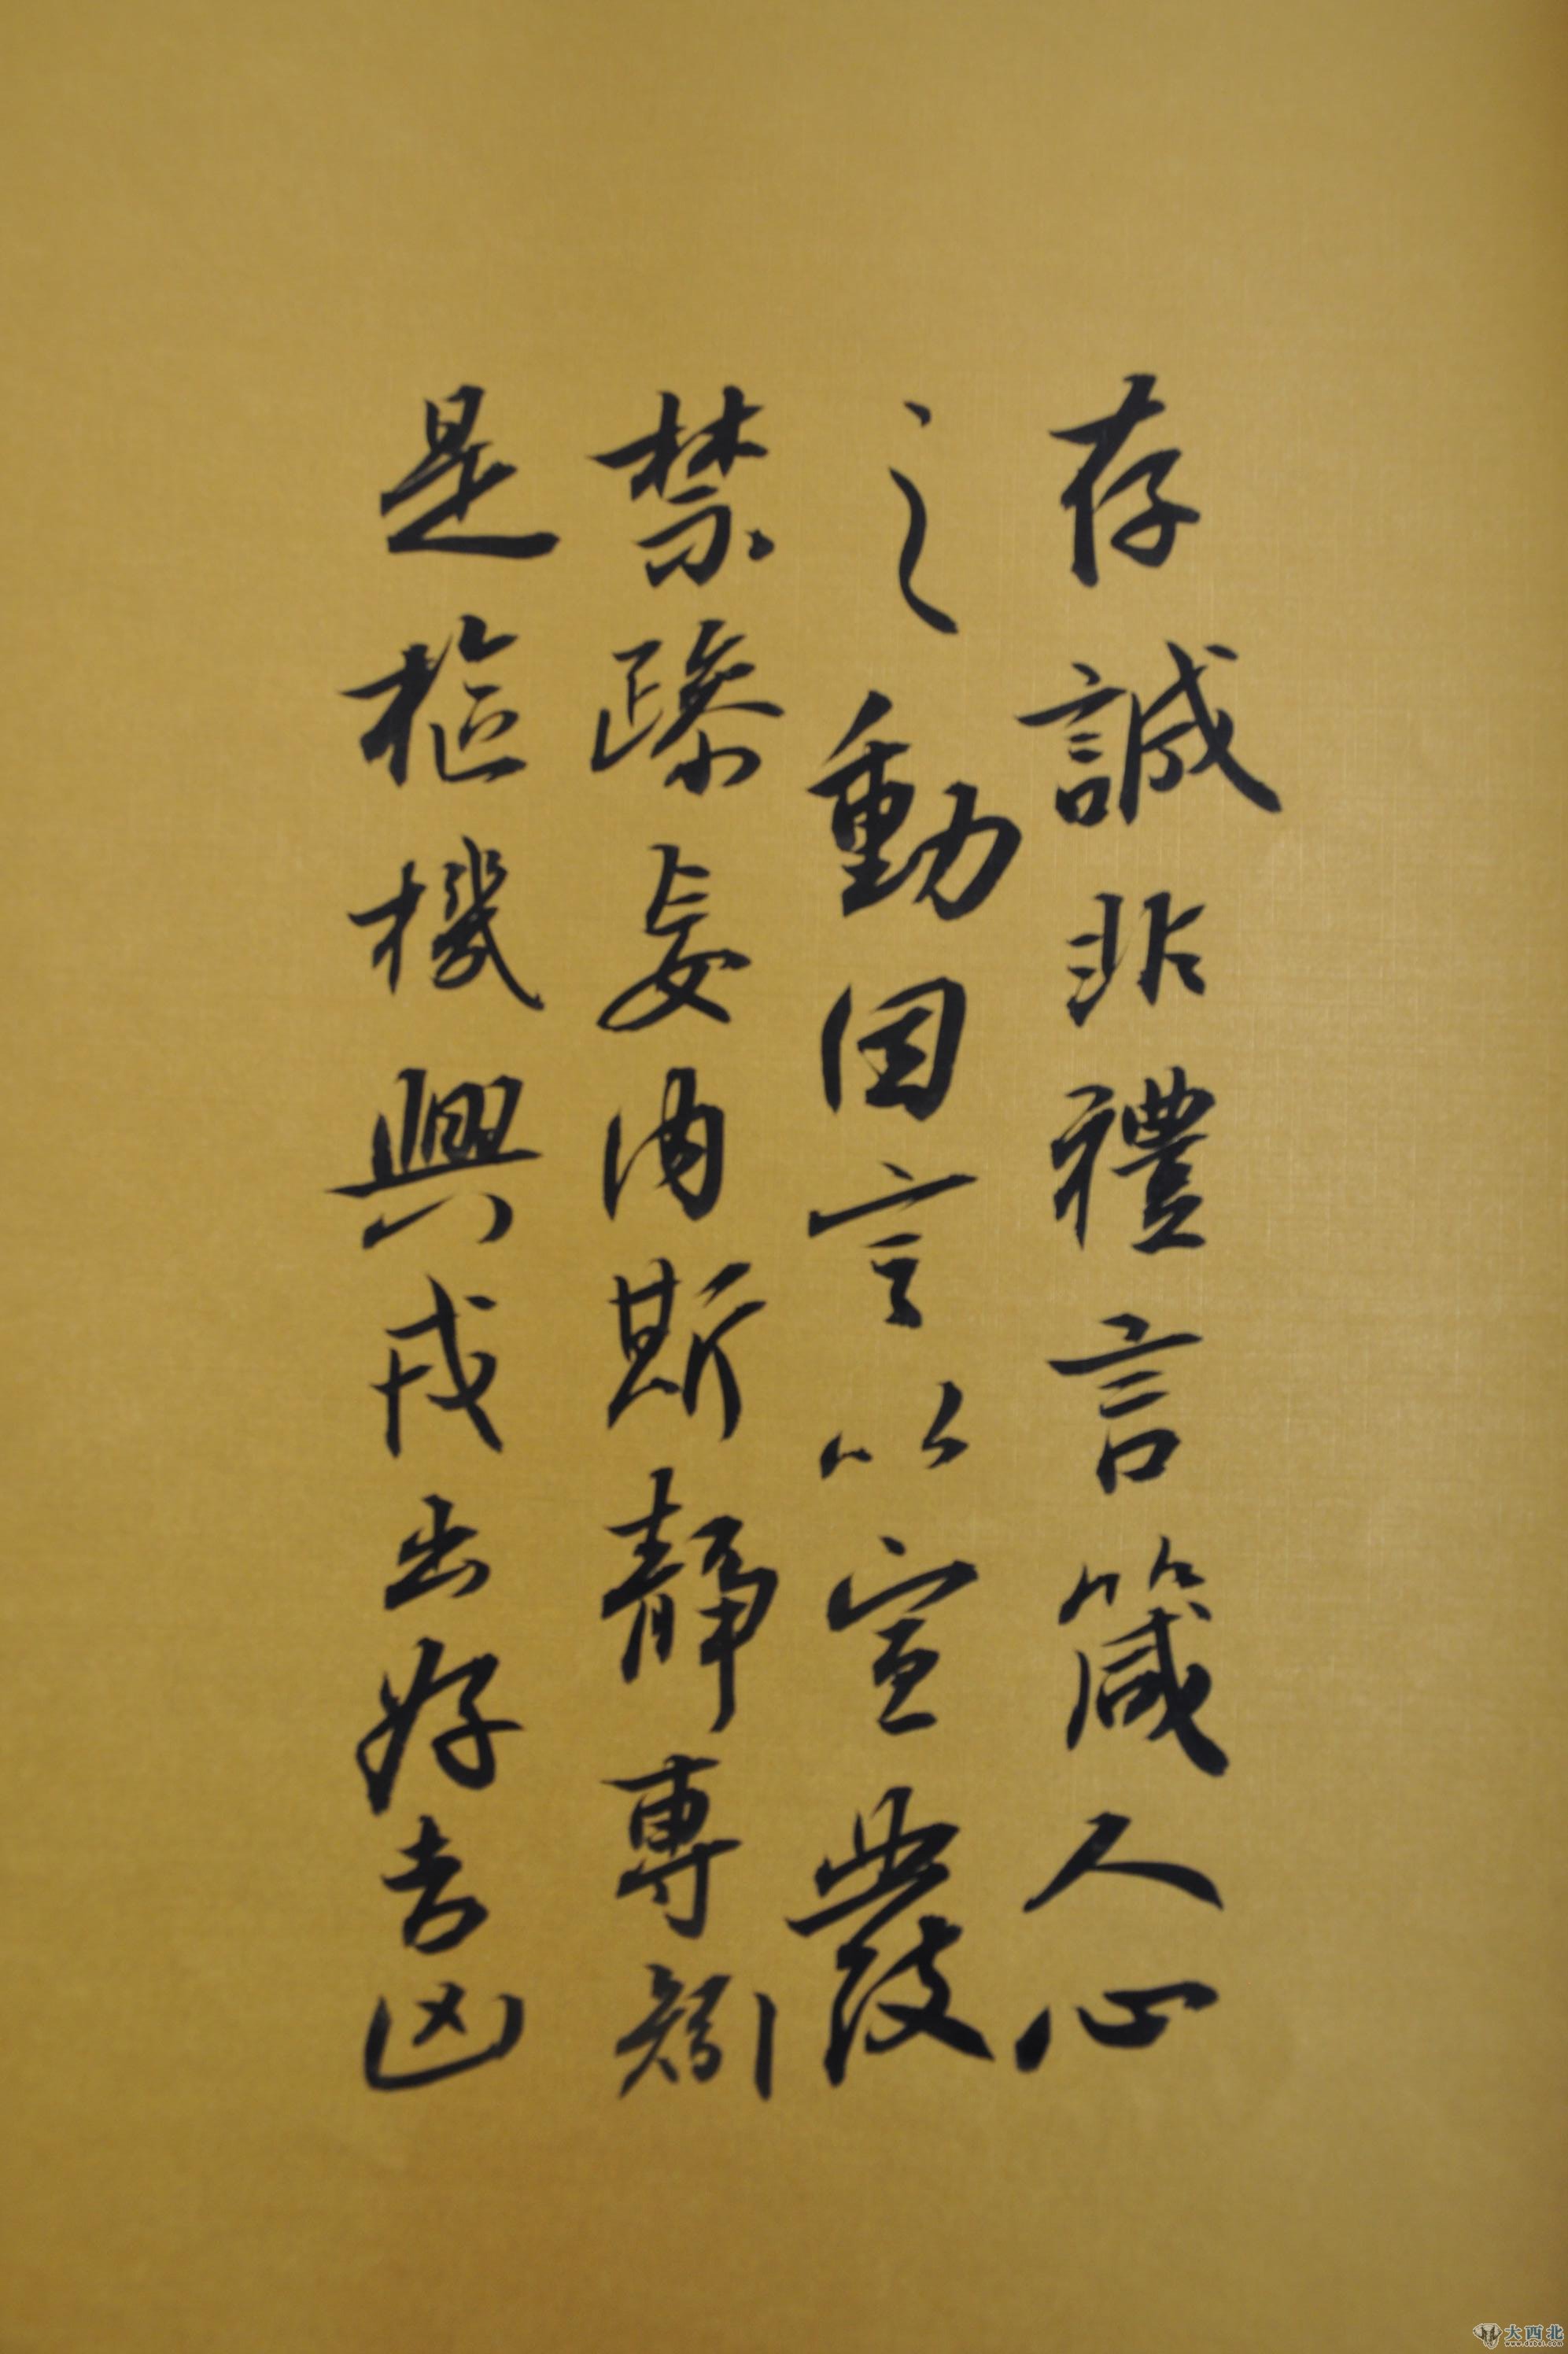 存誠非禮言箴人心
之動因言以宣發
禁躁妄内斯靜專矧
是樞機興戎出好吉凶
大西北